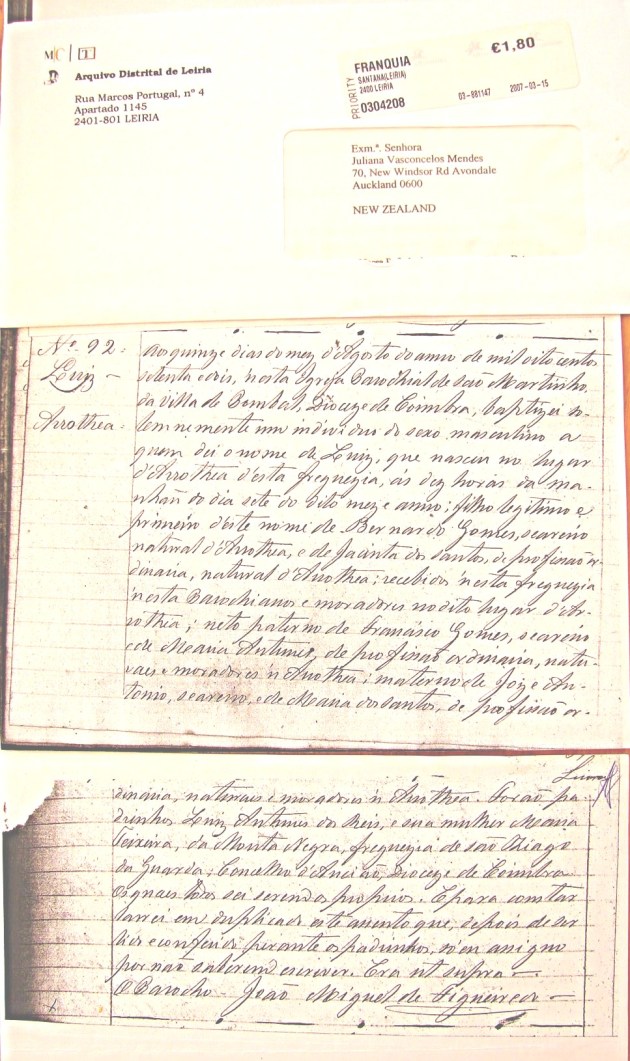 MC
Arquivo Distrital de Leiria
Rua Marcos Portugal, nº 4
Apartado 1145
2401-801 LEIRIA
PRIORITY
FRANQUIA
SANTANA(LEIRIA)
2400 LEIRIA
0304208
€1,80
03-881147 2007-03-15
Exm.ª. Senhora
Juliana Vasconcelos Mendes
70, New Windsor Rd Avondale
Auckland 0600
NEW ZEALAND
Nº 92
Luiz
Arrothea
Aos quinze dias do mez d'Agosto do anno de mil oito centos
setenta e dois, n'esta Igreja Parochial de São Martinho
da Villa de Pombal, Dioceze de Coimbra, baptizei so-
lemnemente um individuo do sexo masculino a
quem dei o nome de Luiz; que nasceu no lugar
d'Arrothea d'esta freguezia, ás dez horas da ma-
nhãa do dia sete do dito mez e anno; filho legitimo e
primeiro d'este nome de Bernardo Gomes, seareiro
natural d'Arrothea, e de Jacinta dos Santos, de profissão or-
dinaria, natural d'Arrothea; recebidos n'esta freguezia
n'esta Parochianos e moradores no dito lugar d'Ar-
rothea; neto paterno de Francisco Gomes, seareiro
e de Maria Antunes, de profissão ordinaria, natu-
raes e moradores n'Arrothea; materno de Joze An-
tonio, seareiro, e de Maria dos Santos, de profissão or-
dinaria, naturaes e moradores n'Arrothea. Forão pa-
drinhos Luiz Antunes dos Reis, e sua mulher Maria
Teixeira, da Mouta Negra, freguezia de São Thiago
da Guarda, Concelho d'Ancião, Dioceze de Coimbra
Os quaes todos sei serem os proprios. E para constar
lavrei em duplicado este assento que, depois de ser
lido e conferido perante os padrinhos, só eu assigno
por não saberem escrever. Era ut supra
O Parocho João Miguel de Figueiredo